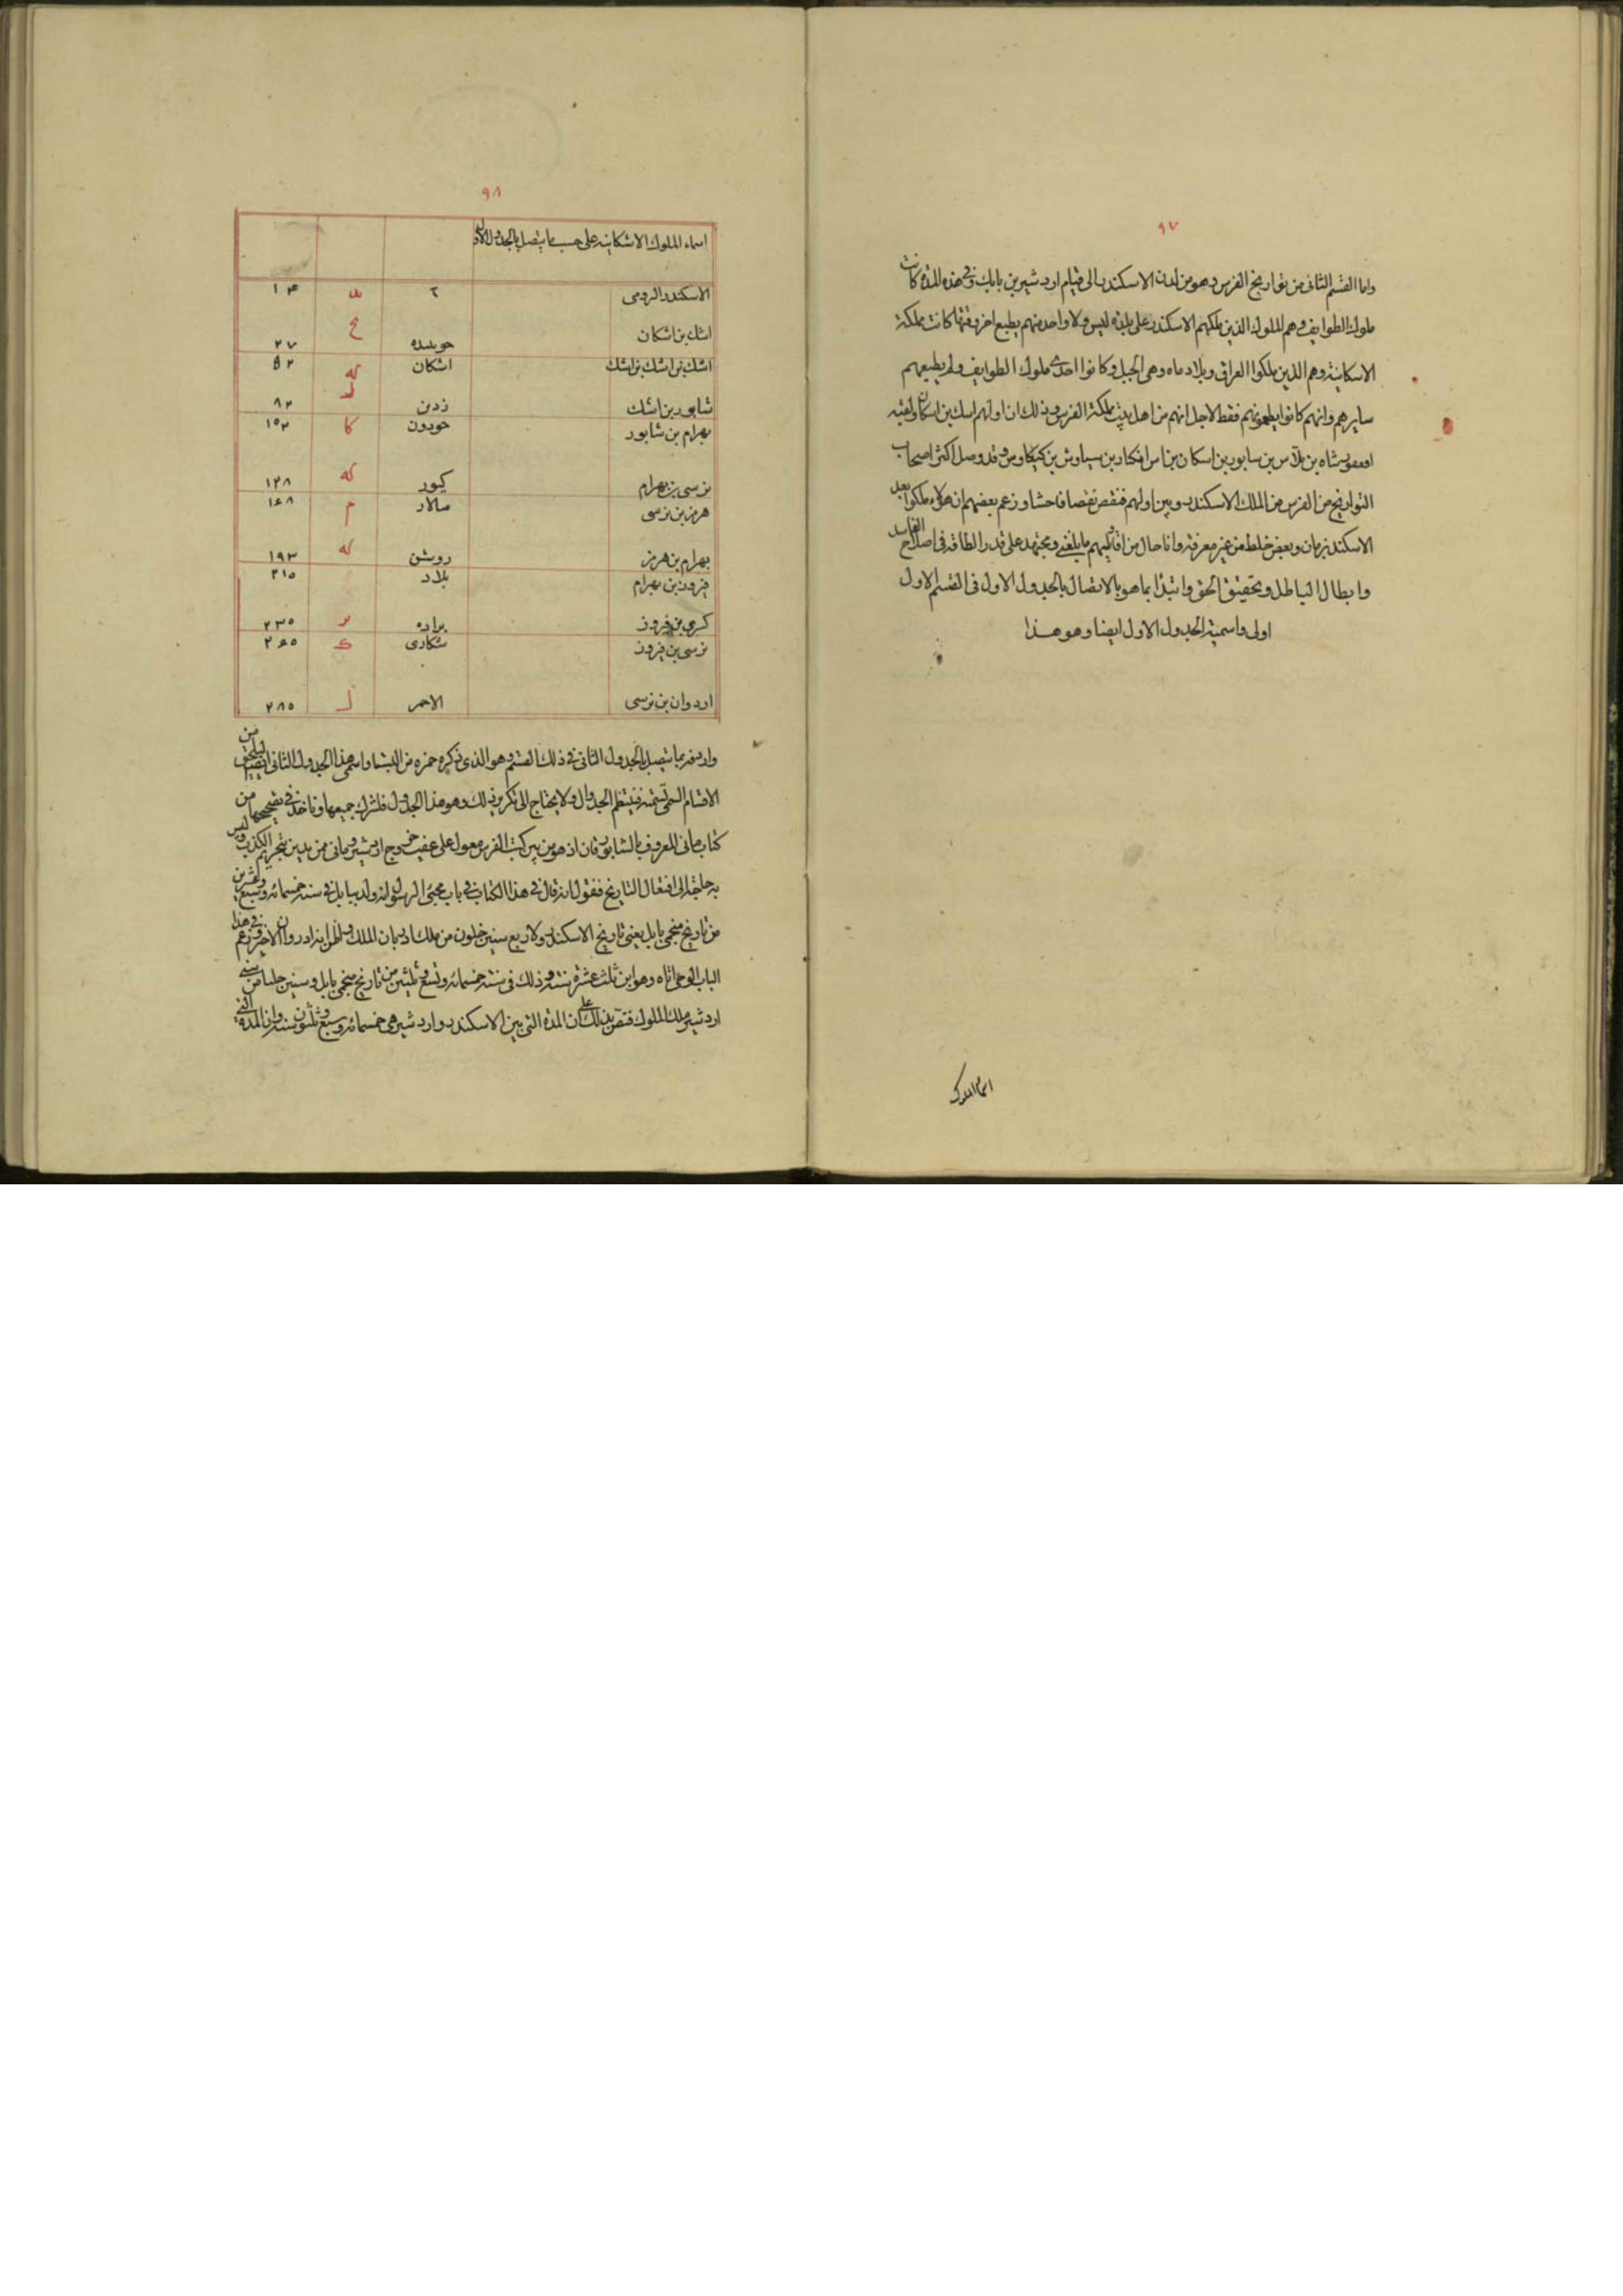 ٩٧
واما القسم الثانى من تواريخ الفرس وهو من لدن الاسكندر الى قيام اردشير بن بابك وفى هذه المدة كانت
ملوك الطوايف وهم الملوك الذين ملكهم الاسكندر على بلده ليس ولا واحد منهم يطيع اخر وفيها كانت مملكة
الاسكانية وهم الذين ملكوا العراق وبلاد ماه وهى الجبل وكانوا احدى ملوك الطوايف ولم يطيعهم
سايرهم وانهم كانوا يعظمونهم فقط لاجل انهم من اهل بيت مملكة الفرس وذلك ان اولهم اسك بن اسكان ولقبه
افغور شاه بن بلاس بن سابور بن اسكان بن اس افكار بن سياوش بن كيكاوس وقد وصل اكثر اصحاب
التواريخ من الفرس من الملك الاسكندر وبين اولهم فنقص نقصا فاحشا وزعم بعضهم ان هولاء ملكوا بعد
الاسكندر بزمان وبعض خلط من غير معرفة وانا حال من اقاويلهم ما بلغنى ومجتهد على قدر الطاقة فى اصلاح الفاسد
وابطال الباطل وتحقيق الحق وابتدا بما هو بالاتصال بالجدول الاول فى القسم الاول
اولى واسميه الجدول الاول ايضا وهو هذا
اسماء الملوك
٩٨
اسماء الملوك الاشكانية على حسب ما يتصل بالجدول الاول
الاسكندر الرومى ٢ يد ١٤
اشك بن اشكان حويلده ح ٢٧
اشك بن اشك بن اشك اشكان كه ٥٢
شابور بن اشك زدىن ل ٨٢
بهرام بن شابور حودون كا ١٠٣
نرسى بن بهرام كيور كه ١٢٨
هرمز بن نرسى سالار م ١٤٨
بهرام بن هرمز روشن كه ١٩٣
فيروز بن بهرام بلاد ٢١٥
كسرى بن فيروز براده ٢٣٥
نرسى بن فيروز شكارى ك ٢٤٥
اردوان بن نرسى الاحمر ل ٢٨٥
واردفه بما يتصل بالجدول الثانى فى ذلك القسم وهو الذى ذكره حمزه من البستا واسمى هذا الجدول الثانى ايضا ليلحق من
الاقسام السمى بسميه فينتظم الجدوال ولا يحتاج الى تكرير ذلك وهو هذا الجدول فلنترك جميعها وناخذ فى تصحيحها من
كتاب مانى المعروف بالشابورقان اذ هو من بين كتب الفرس معول على عقيب خروج اردشير ومانى من يدين بتحريم الكذب وليس
به حاجة الى افتعال التاريخ فنقول انه قال فى هذا الكتاب فى باب مجىء الرسول انه ولد ببابل فى سنه خمسمائه وسبع وعشرين
من تاريخ منجمى بابل يعنى تاريخ الاسكندر ولاربع سنين خلون من ملك ادربان الملك واظن انه اردوان الاخير وزعم فى هذا
الباب الوحى اتاه وهو ابن ثلث عشرة سنة وذلك فى سنة خمسمائه وتسع وثلثين من تاريخ منجمى بابل وسنتين خلتا من سنى
اردشير ملك الملوك فنص بذلك على ان المدة التى بين الاسكندر واردشير هى خمسمائه وسبع وثلثون سنه وان المدة التى